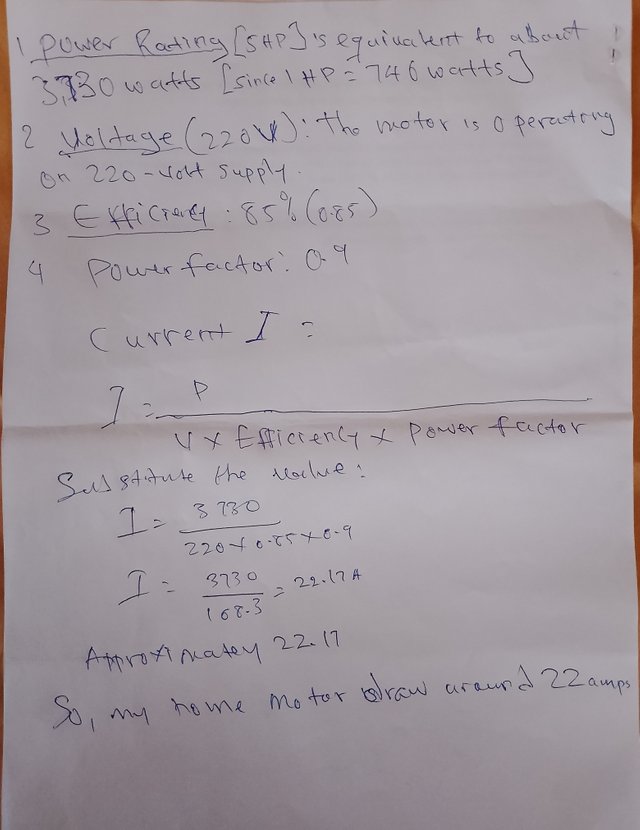 1 Power Rating [5HP] is equivalent to about
3,730 watts [since 1 HP = 746 watts]
2 Voltage (220V): The motor is operating
on 220-volt supply.
3 Efficiency : 85% (0.85)
4 Power factor: 0.9
Current I =
I = P
V x Efficiency x Power factor
Substitute the value:
I = 3730
220 x 0.85 x 0.9
I = 3730
168.3 = 22.17A
Approximatey 22.17
So, my home motor draw around 22 amps